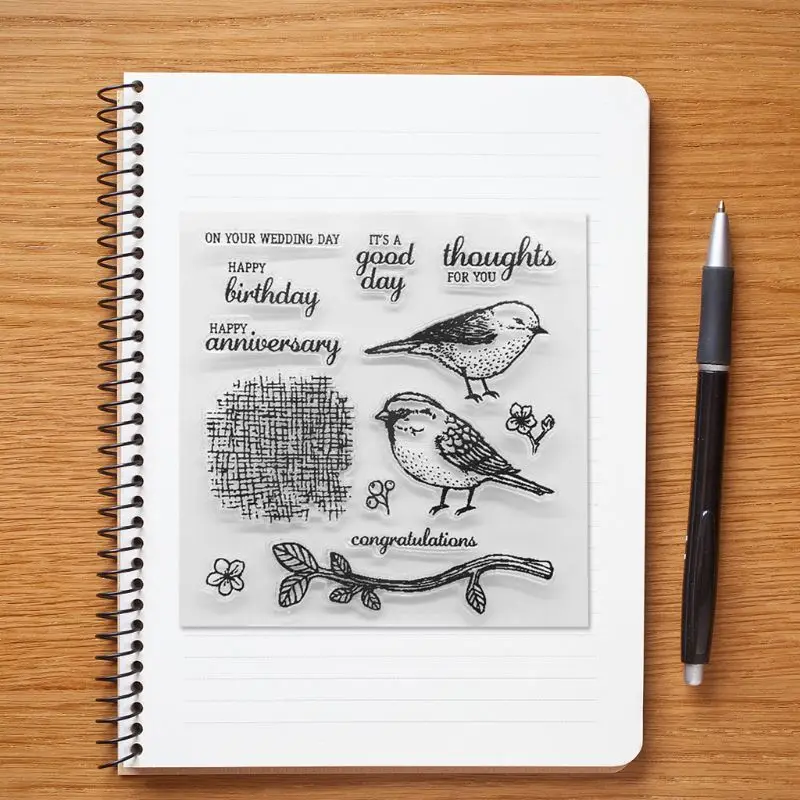 ON YOUR WEDDING DAY
IT'S A
good
day
thoughts
FOR YOU
HAPPY
birthday
HAPPY
anniversary
congratulations